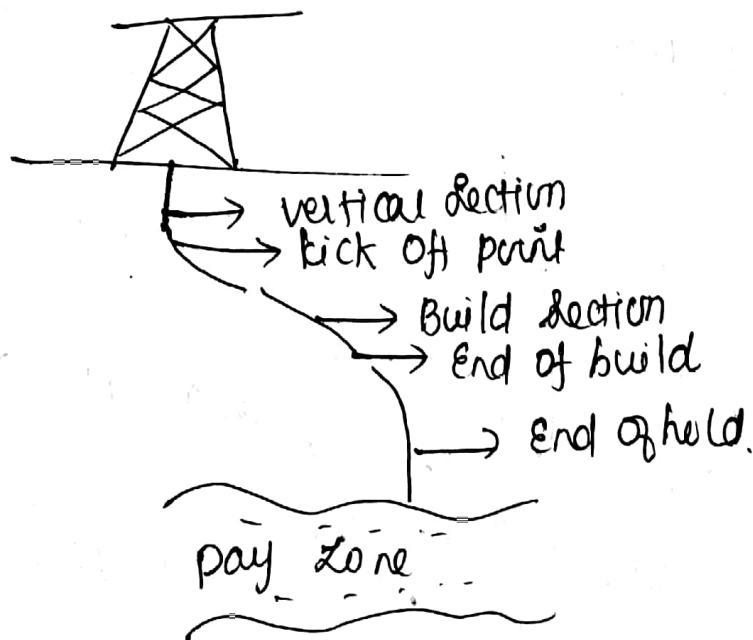 vertical section
kick off point
Build section
End of build
End of hold.
pay zone